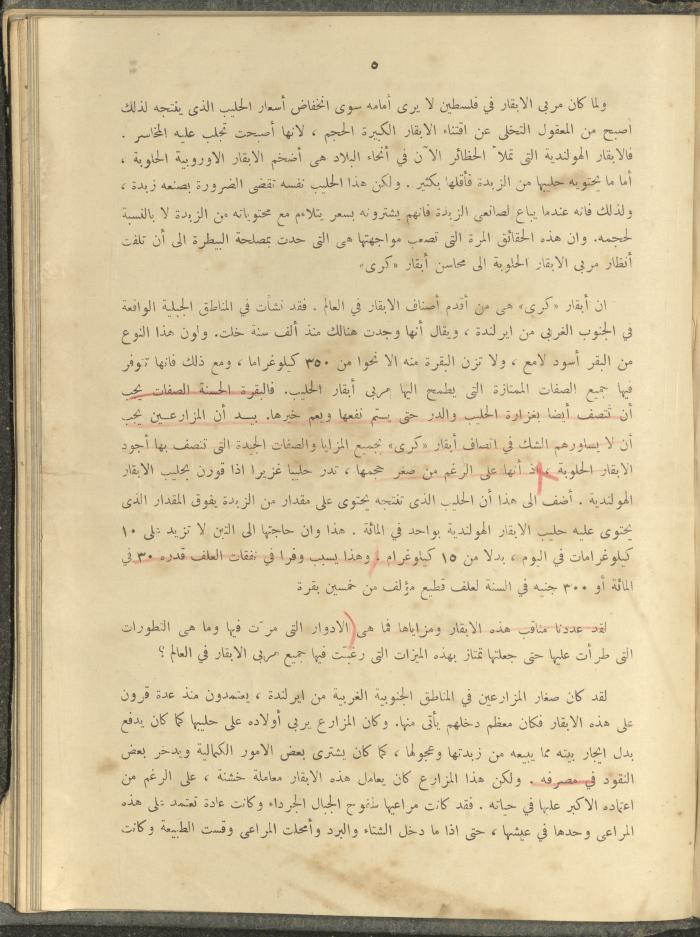 ٥
ولما كان مربي الابقار في فلسطين لا يرى أمامه سوى انخفاض أسعار الحليب الذى يفتجه لذلك
أصبح من المعقول التخلى عن اقتناء الابقار الكبيرة الحجم ، لانها أصبحت تجلب عليه المخاسر .
فالابقار الهولندية التى تملأ الحظائر الآن في أنحاء البلاد هى أضخم الابقار الاوروبية الحلوبة ،
أما ما يحتويه حليبها من الزبدة فأقلها بكثير . ولكن هذا الحليب نفسه تقضى الضرورة بصنعه زبدة ،
ولذلك فانه عندما يباع لصانعى الزبدة فانهم يشترونه بسعر يتلاءم مع محتوياته من الزبدة لا بالنسبة
لحجمه . وان هذه الحقائق المرة التى تصعب مواجهتها هى التى حدت بمصلحة البيطرة الى أن تلفت
أنظار مربي الابقار الحلوبة الى محاسن أبقار «كرى»
ان أبقار «كرى» هى من أقدم أصناف الابقار في العالم . فقد نشأت في المناطق الجبلية الواقعة
في الجنوب الغربي من ايرلندة ، ويقال أنها وجدت هنالك منذ ألف سنة خلت. ولون هذا النوع
من البقر أسود لامع ، ولا تزن البقرة منه الا نحوا من ٣٥٠ كيلوغراما ، ومع ذلك فانها تتوفر
فيها جميع الصفات الممتازة التى يطمح اليها مربي أبقار الحليب. فالبقرة الحسنة الصفات يجب
أن تتصف أيضا بغزارة الحليب والدر حتى يستم نفعها ويعم خيرها. بيسد أن المزارعين يجب
أن لا يساورهم الشك في اتصاف أبقار «كرى» بجميع المزايا والصفات الجيدة التى تتصف بها أجود
الابقار الحلوبة ، اذ أنها على الرغم من صغر حجمها ، تدر حليبا غزيرا اذا قورن بحليب الابقار
الهولندية . أضف الى هذا أن الحليب الذى تفتجه يحتوى على مقدار من الزبدة يفوق المقدار الذى
يحتوى عليه حليب الابقار الهولندية بواحد في المائة . هذا وان حاجتها الى التبن لا تزيد على ١٠
كيلوغرامات في اليوم ، بدلا من ١٥ كيلوغرام . وهذا يسبب وفرا في نفقات العلف قدره ٣٠ في
المائة أو ٣٠٠ جنيه في السنة لعلف قطيع مؤلف من خمسين بقرة
لقد عددنا مناقب هذه الابقار ومزاياها فما هى الادوار التى مرت فيها وما هى التطورات
التى طرأت عليها حتى جعلتها تمتاز بهذه الميزات التى رغبت فيها جميع مربي الابقار في العالم ؟
لقد كان صغار المزارعين في المناطق الجنوبية الغربية من ايرلندة ، يعتمدون منذ عدة قرون
على هذه الابقار فكان معظم دخلهم يأتى منها. وكان المزارع يربي أولاده على حليبها كما كان يدفع
بدل ايجار بيته مما يبيعه من زبدتها وعجولها ، كما كان يشترى بعض الامور الكمالية ويدخر بعض
النقود في مصرفه . ولكن هذا المزارع كان يعامل هذه الابقار معاملة خشنة ، على الرغم من
اعتماده الاكبر عليها في حياته . فقد كانت مراعيها سفوح الجبال الجرداء وكانت عادة تعتمد على هذه
المراعى وحدها في عيشها ، حتى اذا ما دخل الشتاء والبرد وأمحلت المراعى وقست الطبيعة وكانت